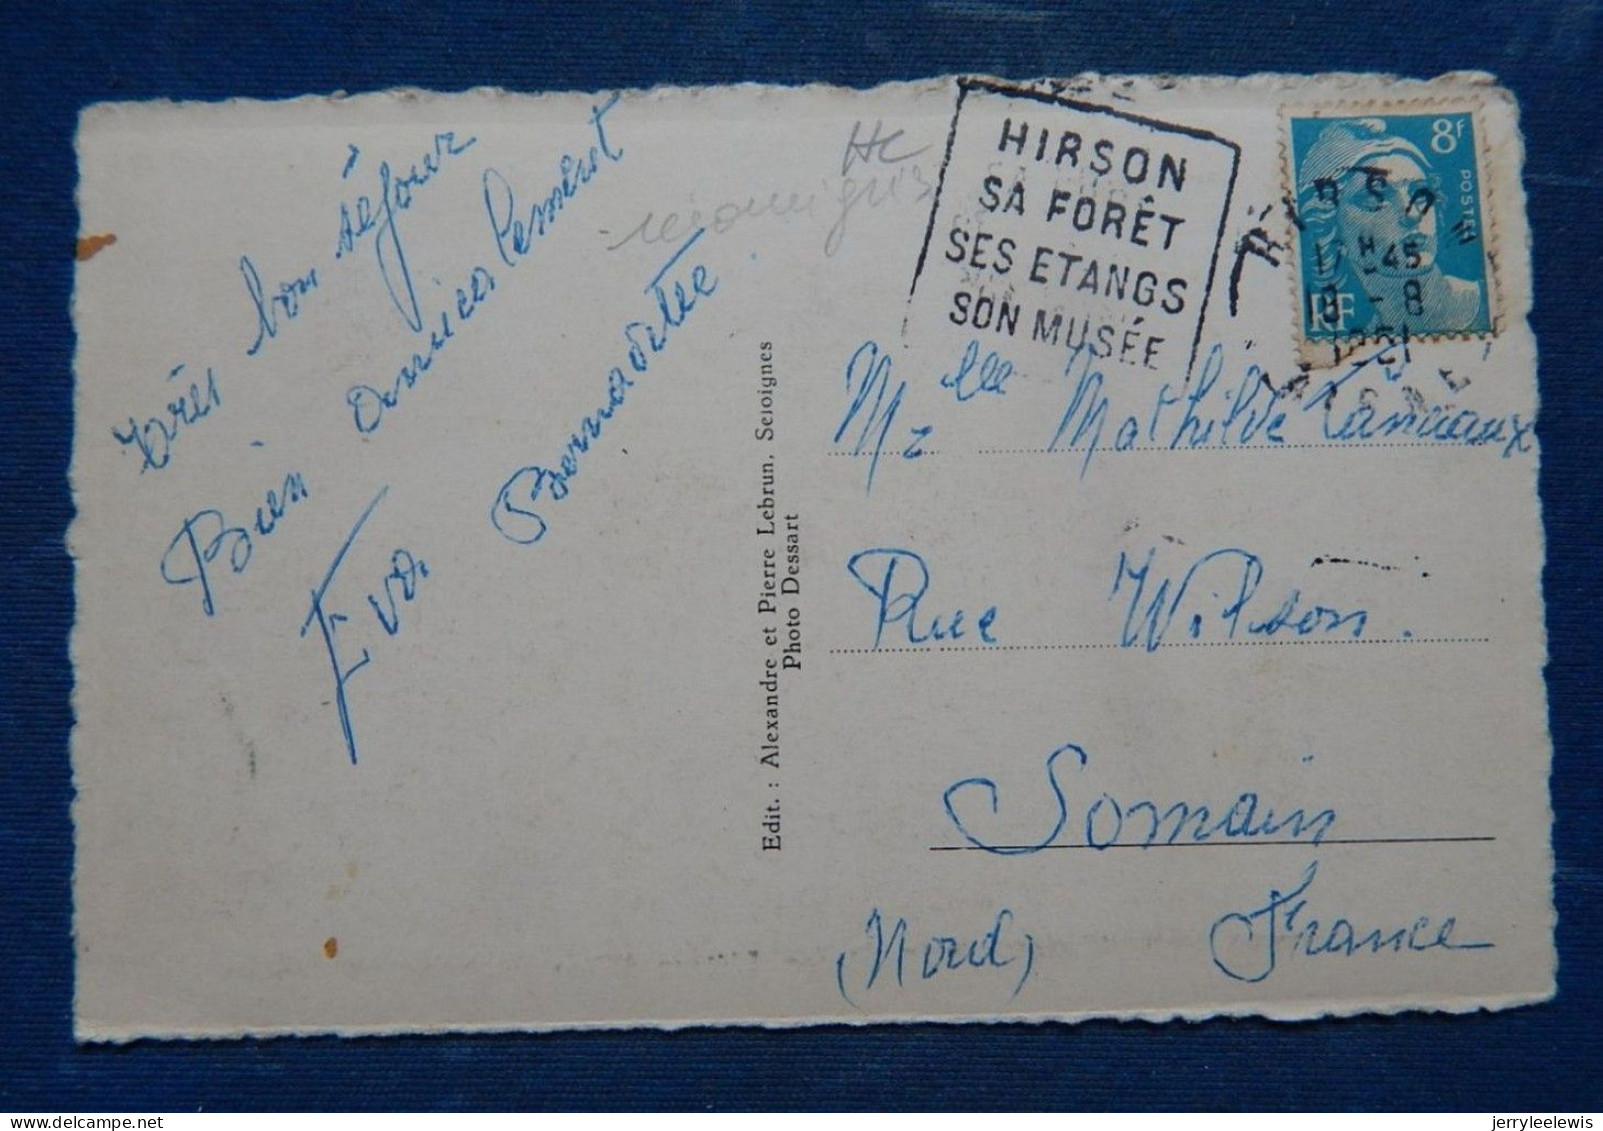 Très bon séjour
Bien amicalement
Eva Bernadette.
HC
Edit. : Alexandre et Pierre Lebrun, Seloignes
Photo Dessart
HIRSON
SA FORÊT
SES ETANGS
SON MUSÉE
8F
POSTES
RF
17H45
18-8
1951
AISNE
Mlle Mathilde
Rue Wilson.
Somain
(Nord) France
jerryleelewis